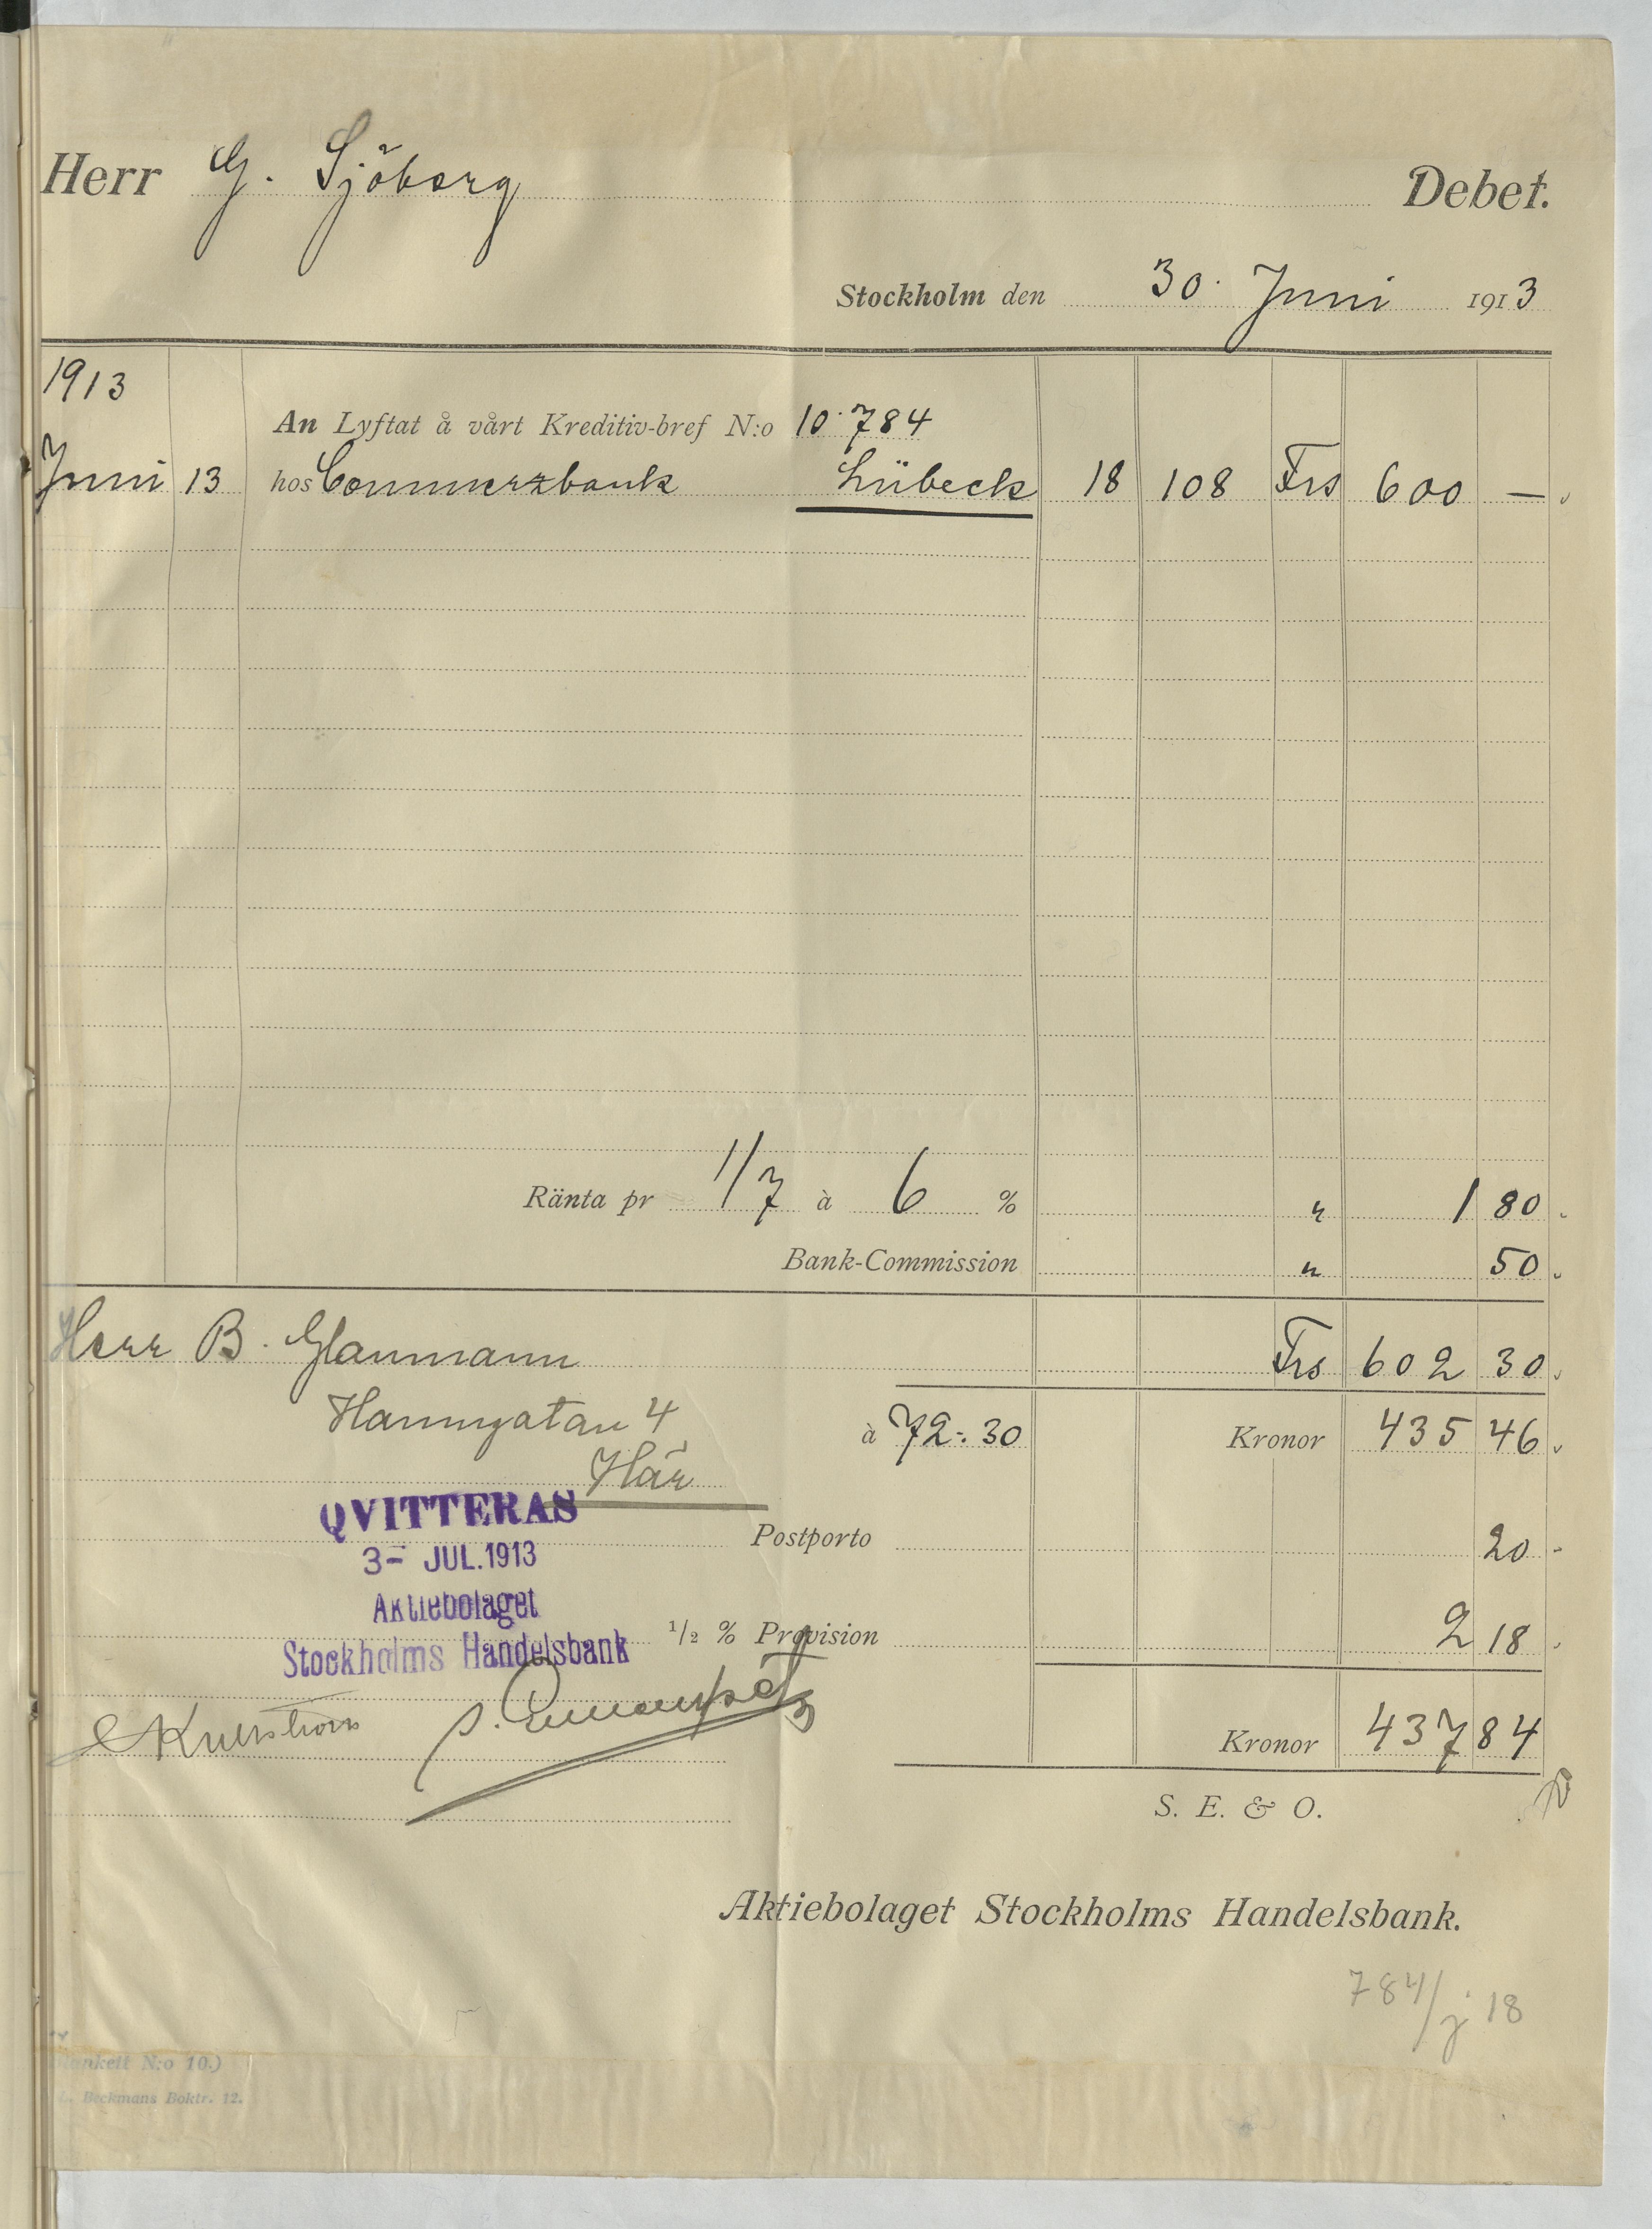 Herr G. Sjöberg Debet.
Stockholm den 30. Juni 1913
1913
An Lyftat å vårt Kreditiv-bref N:o 10.784
Juni 13 hos Commerzbank Lübeck 18 108 Frs 600 —
Ränta pr 1/7 à 6 % " 1 80
Bank-Commission " 50
Herr B. Glanmann Frs 602 30
Hamngatan 4 à 72:30 Kronor 435 46
Här
QVITTERAS
Postporto 20
3- JUL.1913
Aktiebolaget
1/2 % Provision 2 18
Stockholms Handelsbank
Kronor 437 84
S. E. & O.
Aktiebolaget Stockholms Handelsbank.
784/j 18
Blankett N:o 10.)
Beckmans Boktr. 12.